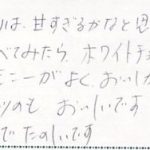 は、甘すぎるかなと思
べてみたら、ホワイトチ
モニーがよく、おいし
ツのも おいしいです
でたのしいです